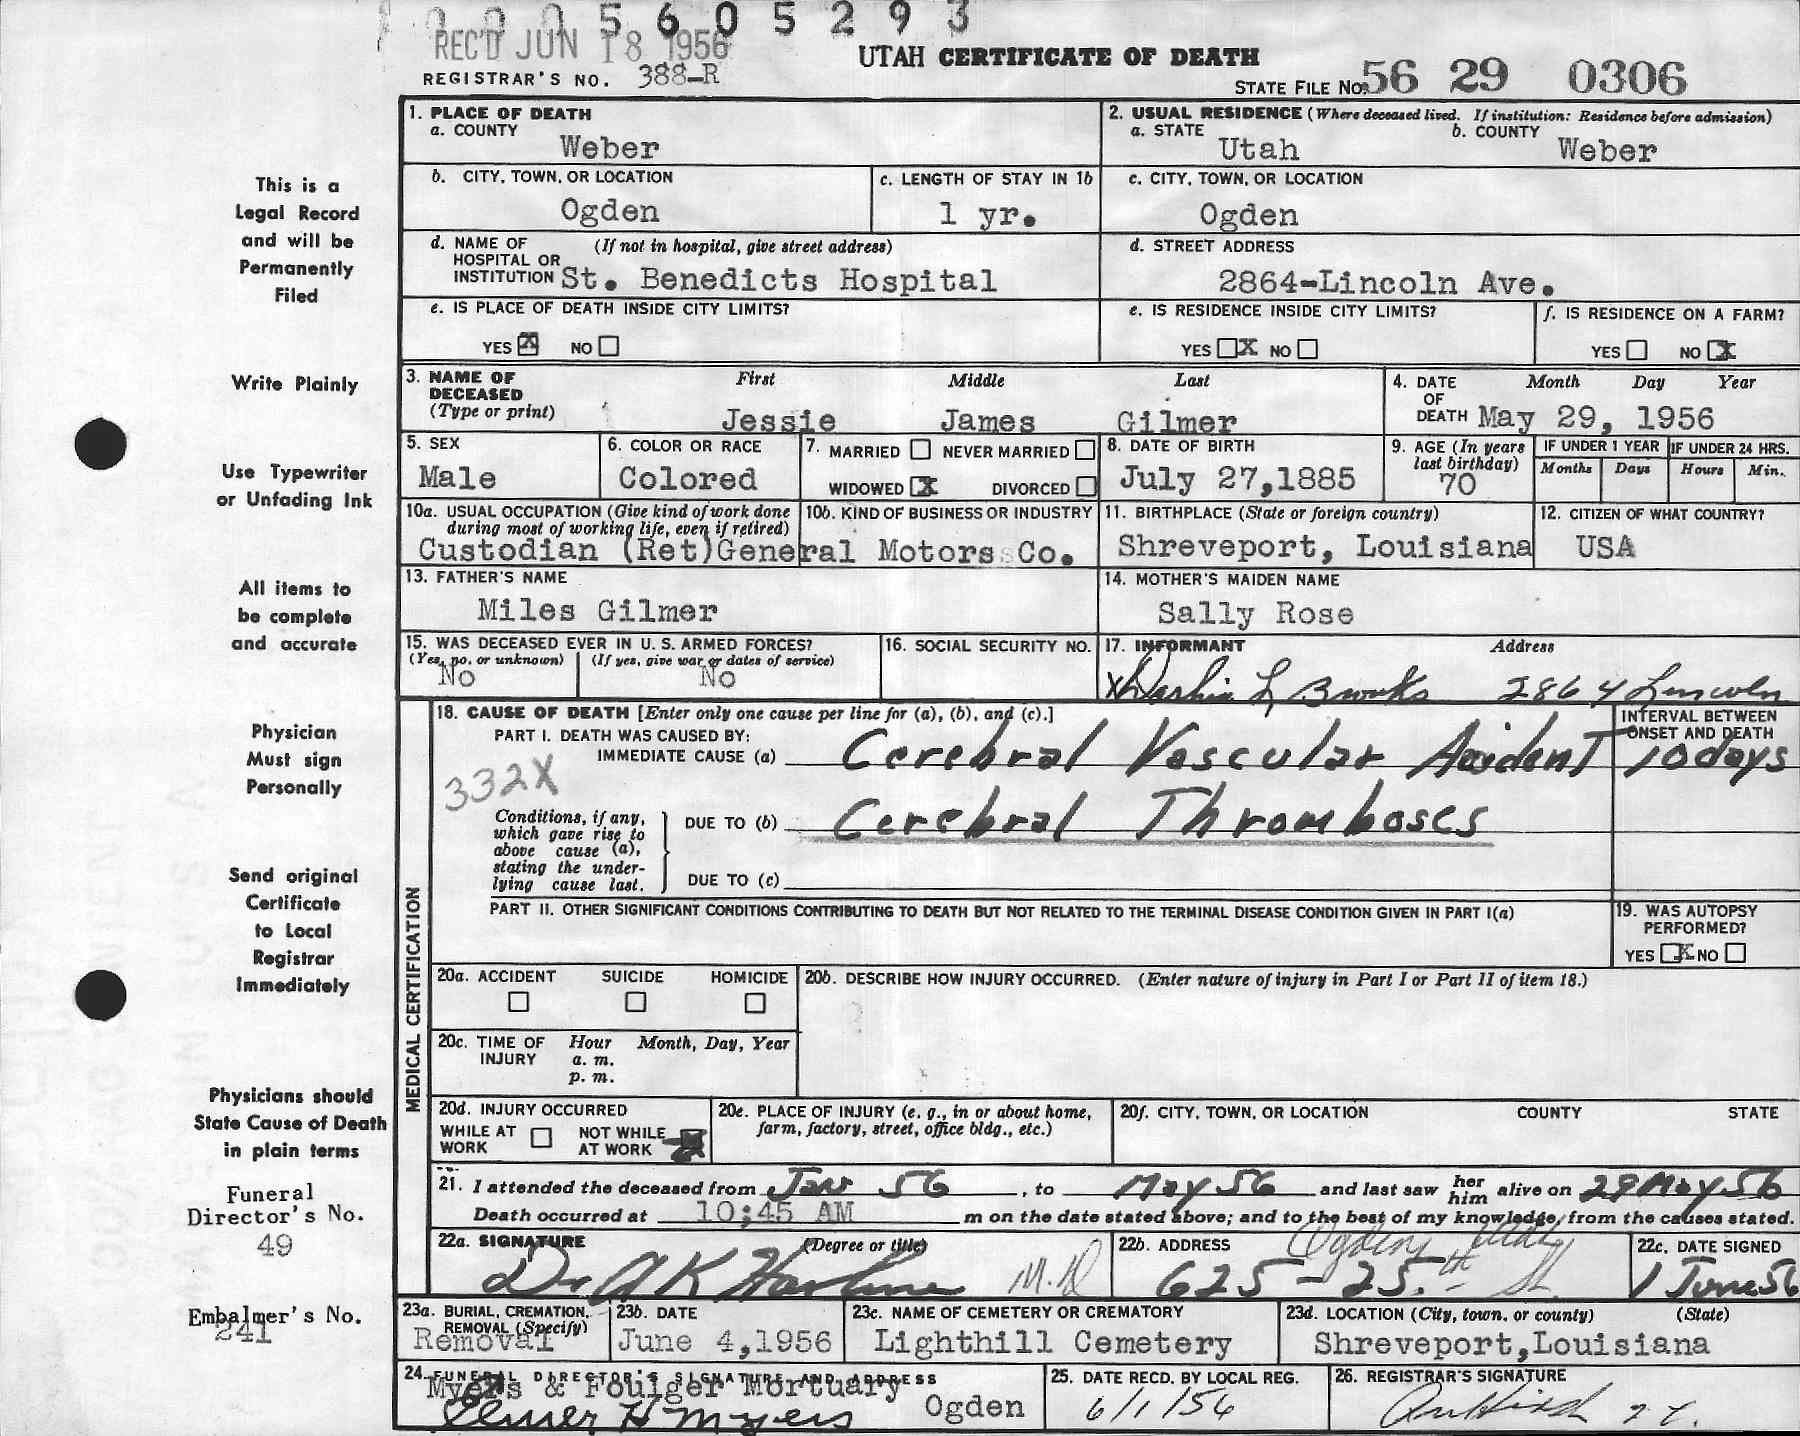 0 0 0 5 6 0 5 2 9 3
REC'D JUN 18 1956
UTAH CERTIFICATE OF DEATH
REGISTRAR'S NO. 388-R
STATE FILE NO. 56 29 0306
This is a
Legal Record
and will be
Permanently
Filed
Write Plainly
Use Typewriter
or Unfading Ink
All items to
be complete
and accurate
Physician
Must sign
Personally
Send original
Certificate
to Local
Registrar
Immediately
Physicians should
State Cause of Death
in plain terms
Funeral
Director's No.
49
Embalmer's No.
241
1. PLACE OF DEATH
a. COUNTY
Weber
2. USUAL RESIDENCE (Where deceased lived. If institution: Residence before admission)
a. STATE b. COUNTY
Utah Weber
b. CITY, TOWN, OR LOCATION
Ogden
c. LENGTH OF STAY IN 1b
1 yr.
c. CITY, TOWN, OR LOCATION
Ogden
d. NAME OF (If not in hospital, give street address)
HOSPITAL OR
INSTITUTION St. Benedicts Hospital
d. STREET ADDRESS
2864-Lincoln Ave.
e. IS PLACE OF DEATH INSIDE CITY LIMITS?
YES X NO
e. IS RESIDENCE INSIDE CITY LIMITS?
YES X NO
f. IS RESIDENCE ON A FARM?
YES NO X
3. NAME OF DECEASED (Type or print)
First Middle Last
Jessie James Gilmer
4. DATE OF DEATH
Month Day Year
May 29, 1956
5. SEX
Male
6. COLOR OR RACE
Colored
7. MARRIED NEVER MARRIED
WIDOWED X DIVORCED
8. DATE OF BIRTH
July 27,1885
9. AGE (In years last birthday)
70
IF UNDER 1 YEAR
Months Days
IF UNDER 24 HRS.
Hours Min.
10a. USUAL OCCUPATION (Give kind of work done
during most of working life, even if retired)
Custodian (Ret)
10b. KIND OF BUSINESS OR INDUSTRY
General Motors Co.
11. BIRTHPLACE (State or foreign country)
Shreveport, Louisiana
12. CITIZEN OF WHAT COUNTRY?
USA
13. FATHER'S NAME
Miles Gilmer
14. MOTHER'S MAIDEN NAME
Sally Rose
15. WAS DECEASED EVER IN U. S. ARMED FORCES?
(Yes, no, or unknown) (If yes, give war or dates of service)
No No
16. SOCIAL SECURITY NO.
17. INFORMANT Address
X L Brooks 2864 Lincoln
MEDICAL CERTIFICATION
18. CAUSE OF DEATH [Enter only one cause per line for (a), (b), and (c).]
INTERVAL BETWEEN
ONSET AND DEATH
PART I. DEATH WAS CAUSED BY:
IMMEDIATE CAUSE (a) Cerebral Vascular Accident 10 days
332X
Conditions, if any,
which gave rise to
above cause (a),
stating the under-
lying cause last.
DUE TO (b) Cerebral Thromboses
DUE TO (c)
PART II. OTHER SIGNIFICANT CONDITIONS CONTRIBUTING TO DEATH BUT NOT RELATED TO THE TERMINAL DISEASE CONDITION GIVEN IN PART I(a)
19. WAS AUTOPSY
PERFORMED?
YES X NO
20a. ACCIDENT SUICIDE HOMICIDE
20b. DESCRIBE HOW INJURY OCCURRED. (Enter nature of injury in Part I or Part II of item 18.)
20c. TIME OF INJURY
Hour Month, Day, Year
a. m.
p. m.
20d. INJURY OCCURRED
WHILE AT WORK NOT WHILE AT WORK
20e. PLACE OF INJURY (e. g., in or about home,
farm, factory, street, office bldg., etc.)
20f. CITY, TOWN, OR LOCATION COUNTY STATE
21. I attended the deceased from Jan 56, to May 56 and last saw her him alive on 29 May 56
Death occurred at 10:45 AM m on the date stated above; and to the best of my knowledge, from the causes stated.
22a. SIGNATURE (Degree or title)
Dr A K M.D
22b. ADDRESS
Ogden, Utah
625 - 25th St.
22c. DATE SIGNED
1 June 56
23a. BURIAL, CREMATION,
REMOVAL (Specify)
Removal
23b. DATE
June 4,1956
23c. NAME OF CEMETERY OR CREMATORY
Lighthill Cemetery
23d. LOCATION (City, town, or county) (State)
Shreveport,Louisiana
24. FUNERAL DIRECTOR'S SIGNATURE AND ADDRESS
Myers & Foulger Mortuary
Elmer H Myers Ogden
25. DATE RECD. BY LOCAL REG.
6/1/56
26. REGISTRAR'S SIGNATURE